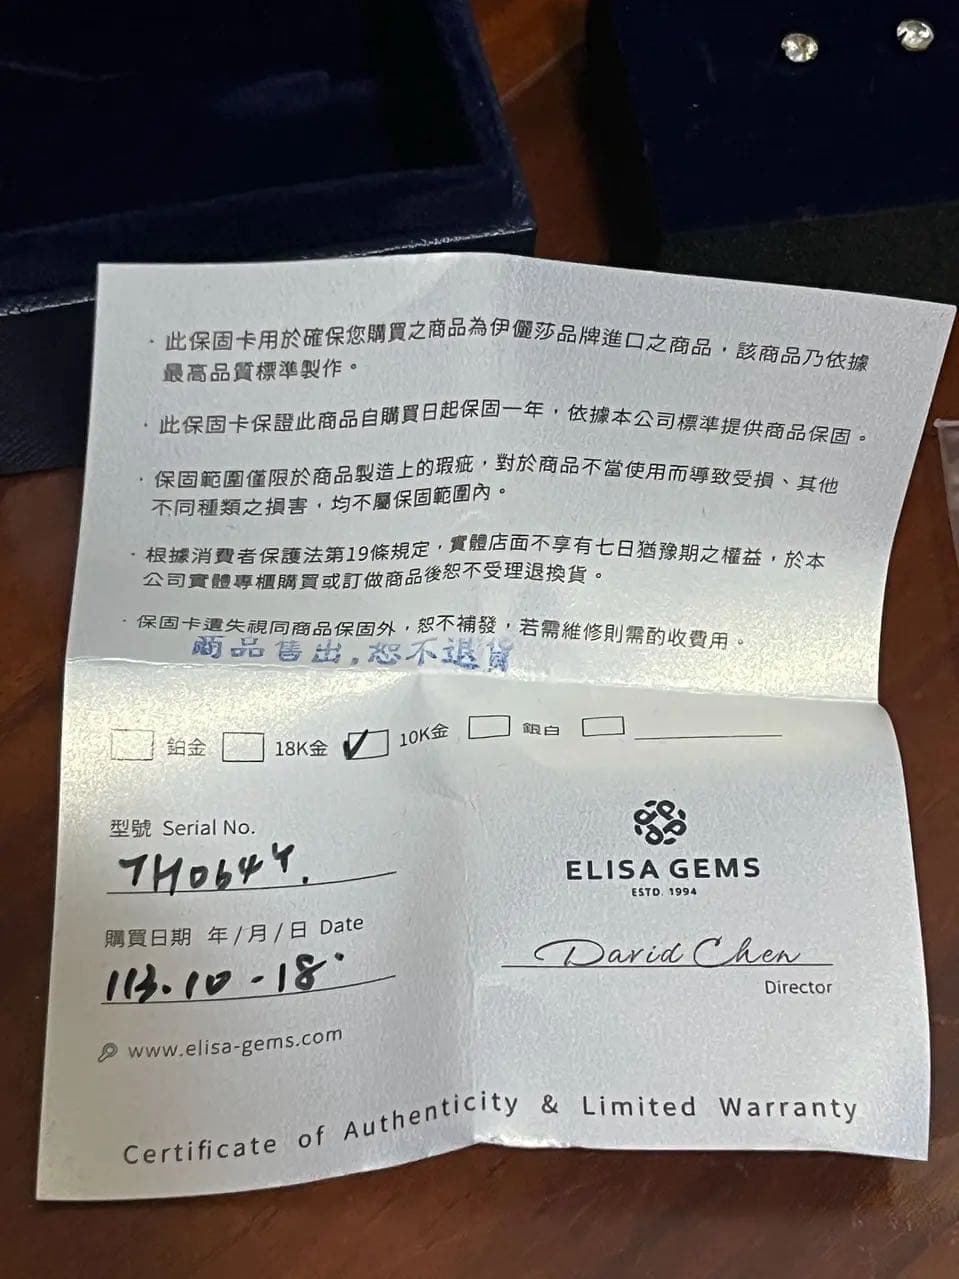 · 此保固卡用於確保您購買之商品為伊儷莎品牌進口之商品，該商品乃依據
最高品質標準製作。
· 此保固卡保證此商品自購買日起保固一年，依據本公司標準提供商品保固。
· 保固範圍僅限於商品製造上的瑕疵，對於商品不當使用而導致受損、其他
不同種類之損害，均不屬保固範圍內。
· 根據消費者保護法第19條規定，實體店面不享有七日猶豫期之權益，於本
公司實體專櫃購買或訂做商品後恕不受理退換貨。
· 保固卡遺失視同商品保固外，恕不補發，若需維修則需酌收費用。
商品售出,恕不退貨
鉑金 18K金 ✓ 10K金 銀白
型號 Serial No.
TH0644.
購買日期 年/月/日 Date
113.10-18.
www.elisa-gems.com
ELISA GEMS
ESTD. 1994
David Chen
Director
Certificate of Authenticity & Limited Warranty